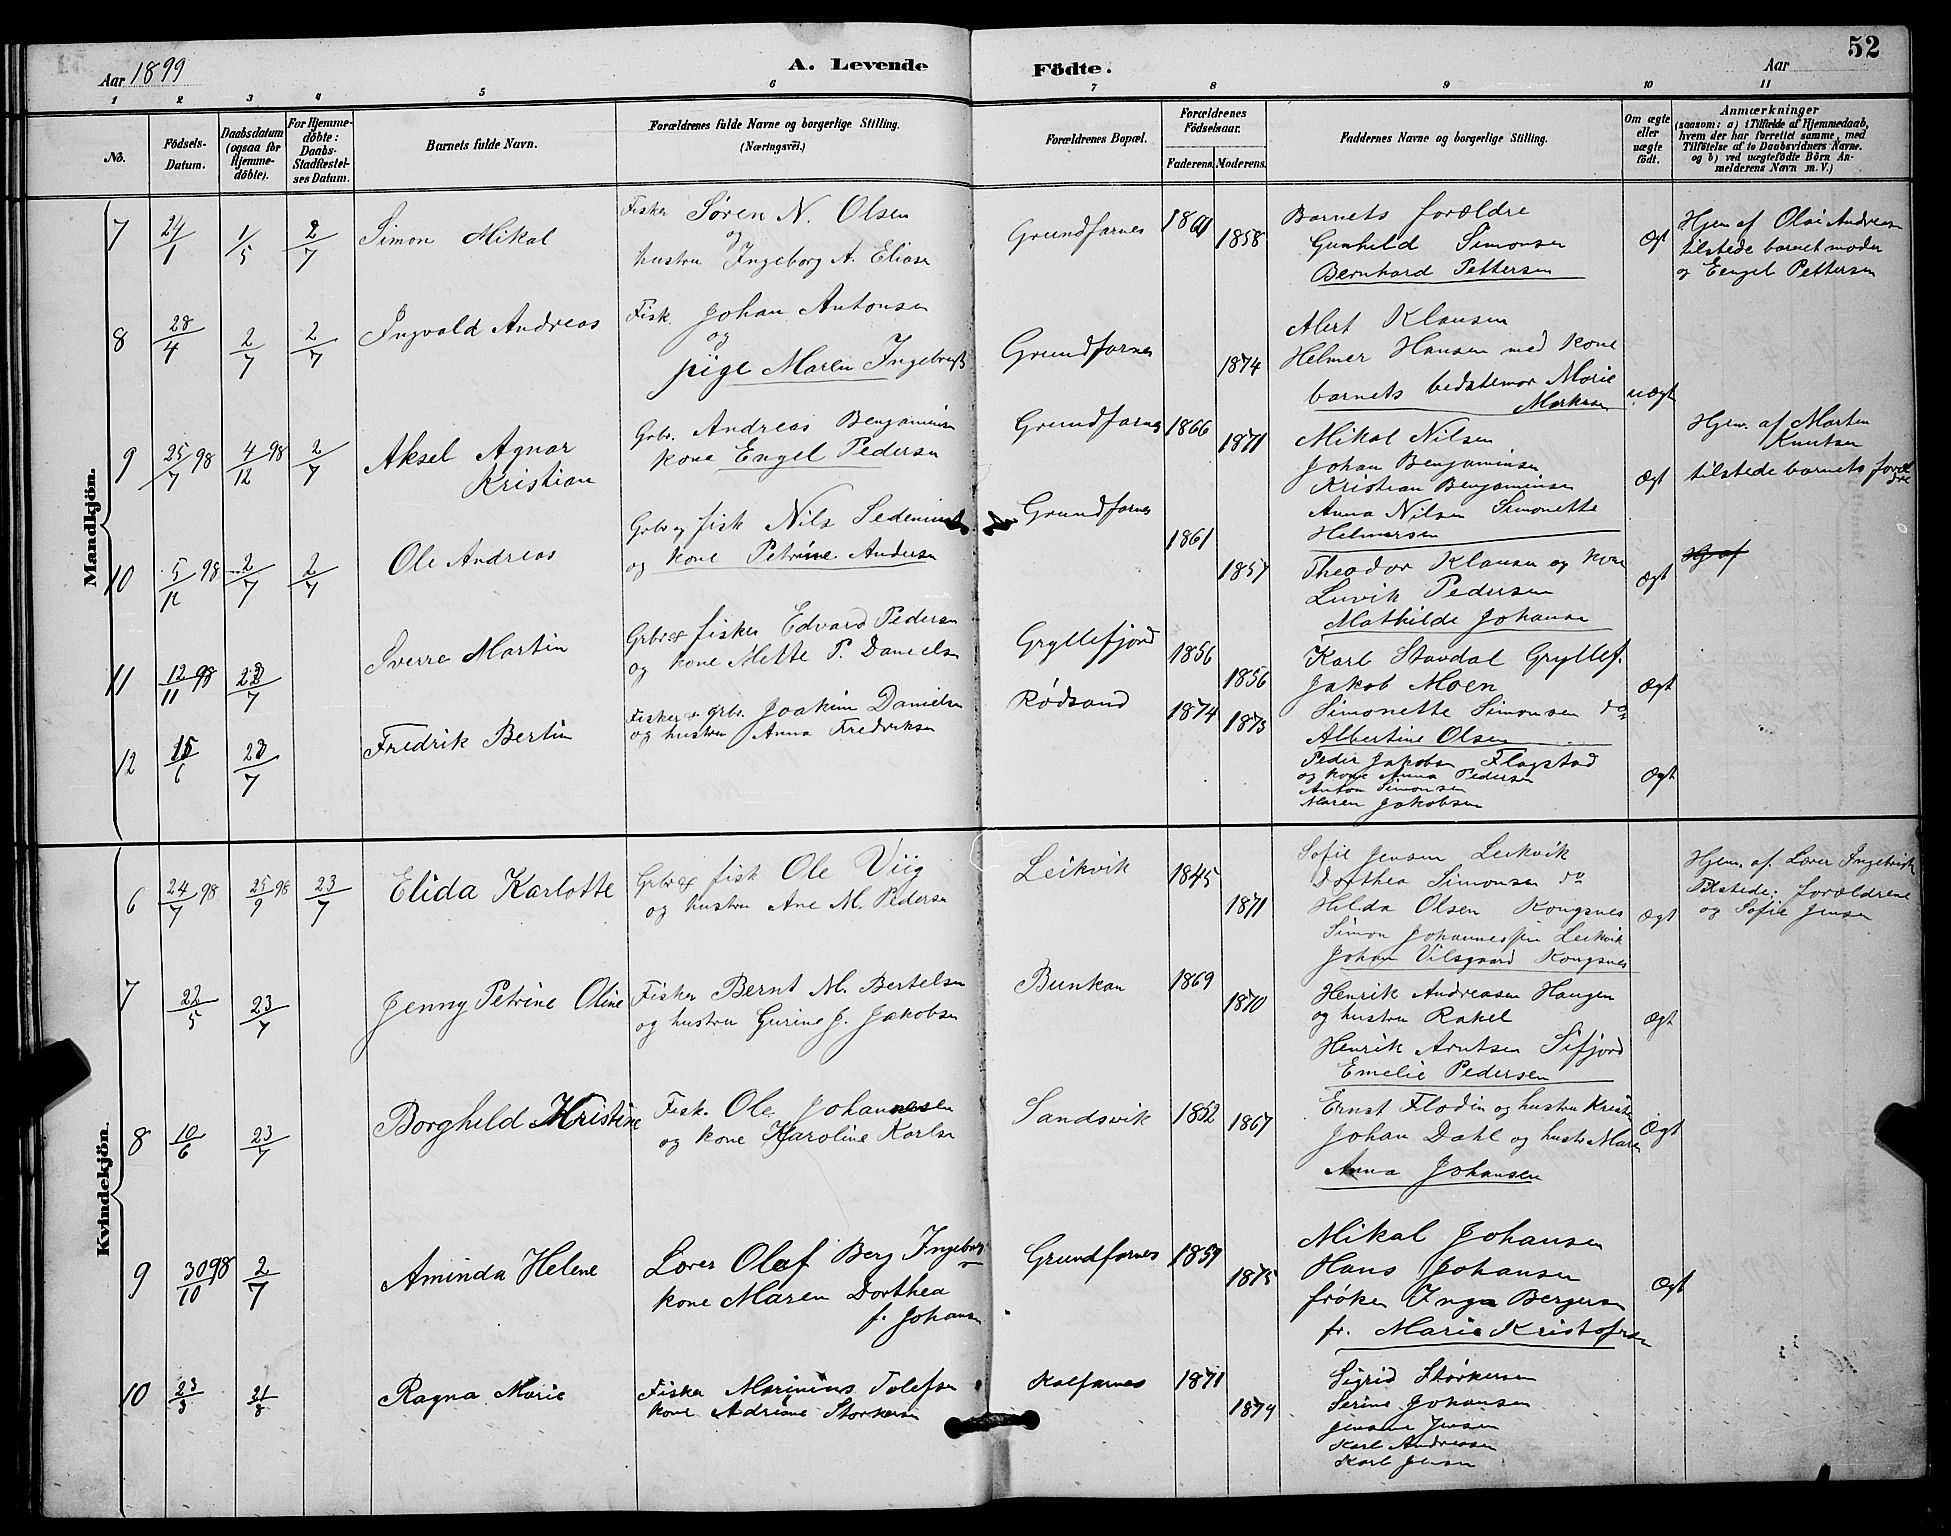 52
Aar 1899
A. Levende Födte.
Aar
1 2 3 4 5 6 7 8 9 10 11
No.
Födsels-Datum.
Daabsdatum (ogsaa for Hjemme-döbte).
For Hjemme-döbte: Daabs-Stadfæstel-ses Datum.
Barnets fulde Navn.
Forældrenes fulde Navne og borgerlige Stilling.
(Næringsvei.)
Forældrenes Bopæl.
Forældrenes Födselsaar.
Faderens. Moderens.
Faddernes Navne og borgerlige Stilling.
Om ægte eller uægte födt.
Anmærkninger
(saasom: a) i Tilfælde af Hjemmedaab,
hvem der har forrettet samme, med
Tilföielse af to Daabsvidners Navne,
og b) ved uægtefödte Börn An-
melderens Navn m. V.)
Mandkjön.
7 24/1 1/5 2/7 Simon Mikal
Fisker Søren N. Olsen
og
hustru Ingeborg A. Elias
Grundfarnes 1858
Barnets forældre
Gunhild Simonsen
Bernhard Pettersen
Ægt
Hjem af Olai Andreas
tilstede barnet moder
og Eengel Pettersen
8 28/4 2/7 2/7 Ingvald Andreas
Fisk. Johan Antonsen
og
pige Maren Ingebrigts
Grundfarnes 1874
Alert Klausen
Helmer Hansen med kone
barnets bedstemor Marie
Markusen
uægt
9 25/7 98 4/12 98 2/7 Aksel Agnar
Kristian
Grbr. Andreas Benjaminsen
kone Engel Pedersen
Grundfarnes 1866 1871
Mikal Nilsen
Johan Benjaminsen
Kristian Benjaminsen
Anna Nilsen Simonette
Helmersen
Ægt
Hjem. af Marten
Knutsen
tilstede barnets forældre
10 5/11 98 2/7 2/7 Ole Andreas
Grbr og fisk Nils
og kone Petrine Andersen
Grundfarnes 1861 1857
Theodor Klausen og kone
Luvik Pedersen
Mathilde Johansen
Ægt
Hj af
11 12/11 98 /7 Sverre Martin
Grbr & fisker Edvard Pedersen
og kone Mette P. Danielsen
Gryllefjord 1856 1856
Karl Stavdal Gryllef.
Jakob Moen
Simonette Simonsen do
Albertine Olsen
Ægt
12 15/6 23/7 Fredrik Bertin
Fisker & grbr. Joakim Danielsen
og hustru Anna Fredriksen
Rødsand 1874 1873
Peder Jakobsen Flagstad
og kone Anna Pedersen
Anton Simonsen
Maren Jakobsen
Ægt
Kvindekjön.
6 24/7 98 25/9 98 23/7 Elida Karlotte
Grbr & fisk Ole Viig
og hustru Ane M. Pedersen
Leikvik 1845 1871
Sofie Jensen Leikvik
Dorthea Simonsen do
Hilda Olsen Kongsnes
Simon Johannessen Leikvik
Johan Vilsgaard Kongsnes
Ægt
Hjem. af. Lærer Ingebrigts
Tilstede: forældrene
og Sofie Jensen
7 22/5 23/7 Jenny Petrine Oline
Fisker Bernt M. Bertelsen
og hustru Gurine J. Jakobsen
Bunkan 1869 1870
Henrik Andreasen Haugen
og hustru Rakel
Henrik Arntsen Sifjord
Emelie Pedersen
Ægt
8 10/6 23/7 Borghild Kristine
Fisk. Ole Johannesen
og kone Karoline Karls
Sandsvik 1852 1867
Ernst Flodin og hustru Kristin
Johan Dahl og hustru Maren
Anna Johansen
Ægt
9 30/10 98 2/7 Aminda Helene
Lærer Olaf Berg Ingebrigts
kone Maren Dorthea
f. Johansen
Grundfarnes 1859 1875
Mikal Johansen
Hans Johansen
frøken Inga Bergersen
fr. Marie Kristofersen
Ægt
10 23/3 21/8 Ragna Marie
Fisker Marinius Tolefsen
kone Adriane Storkersen
Kalfarnes 1871 1874
Sigrid Størkersen
Serine Johansen
Jensine Jensen
Karl Andreasen
Karl Jensen